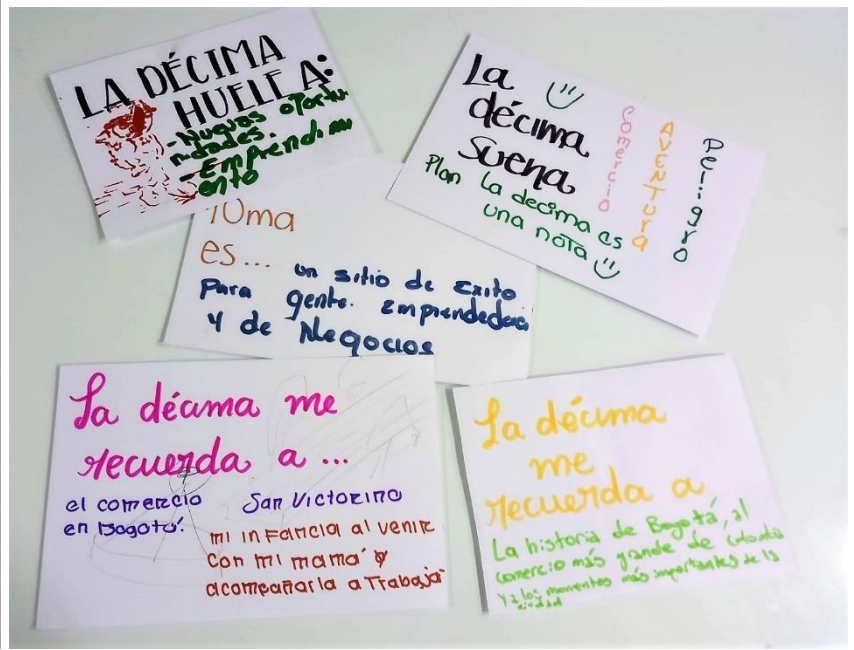 LA DÉCIMA
HUELE A:
- Nuevas oportu
nidades.
- Emprendimi
ento
La
décima
suena
Comercio
AVENTURA
Peligro
Plan La decima es
una nota
10ma
es...
un sitio de Exito
Para gente. Emprendedora
Y de Negocios
La décima me
recuerda a ...
el comercio
en Bogotá.
San Victorino
mi infancia al venir
con mi mamá y
acompañarla a Trabaja
La décima
me
recuerda a
La historia de Bogotá, al
comercio más grande de Colombia
Y a los momentos más importantes de la
ciudad